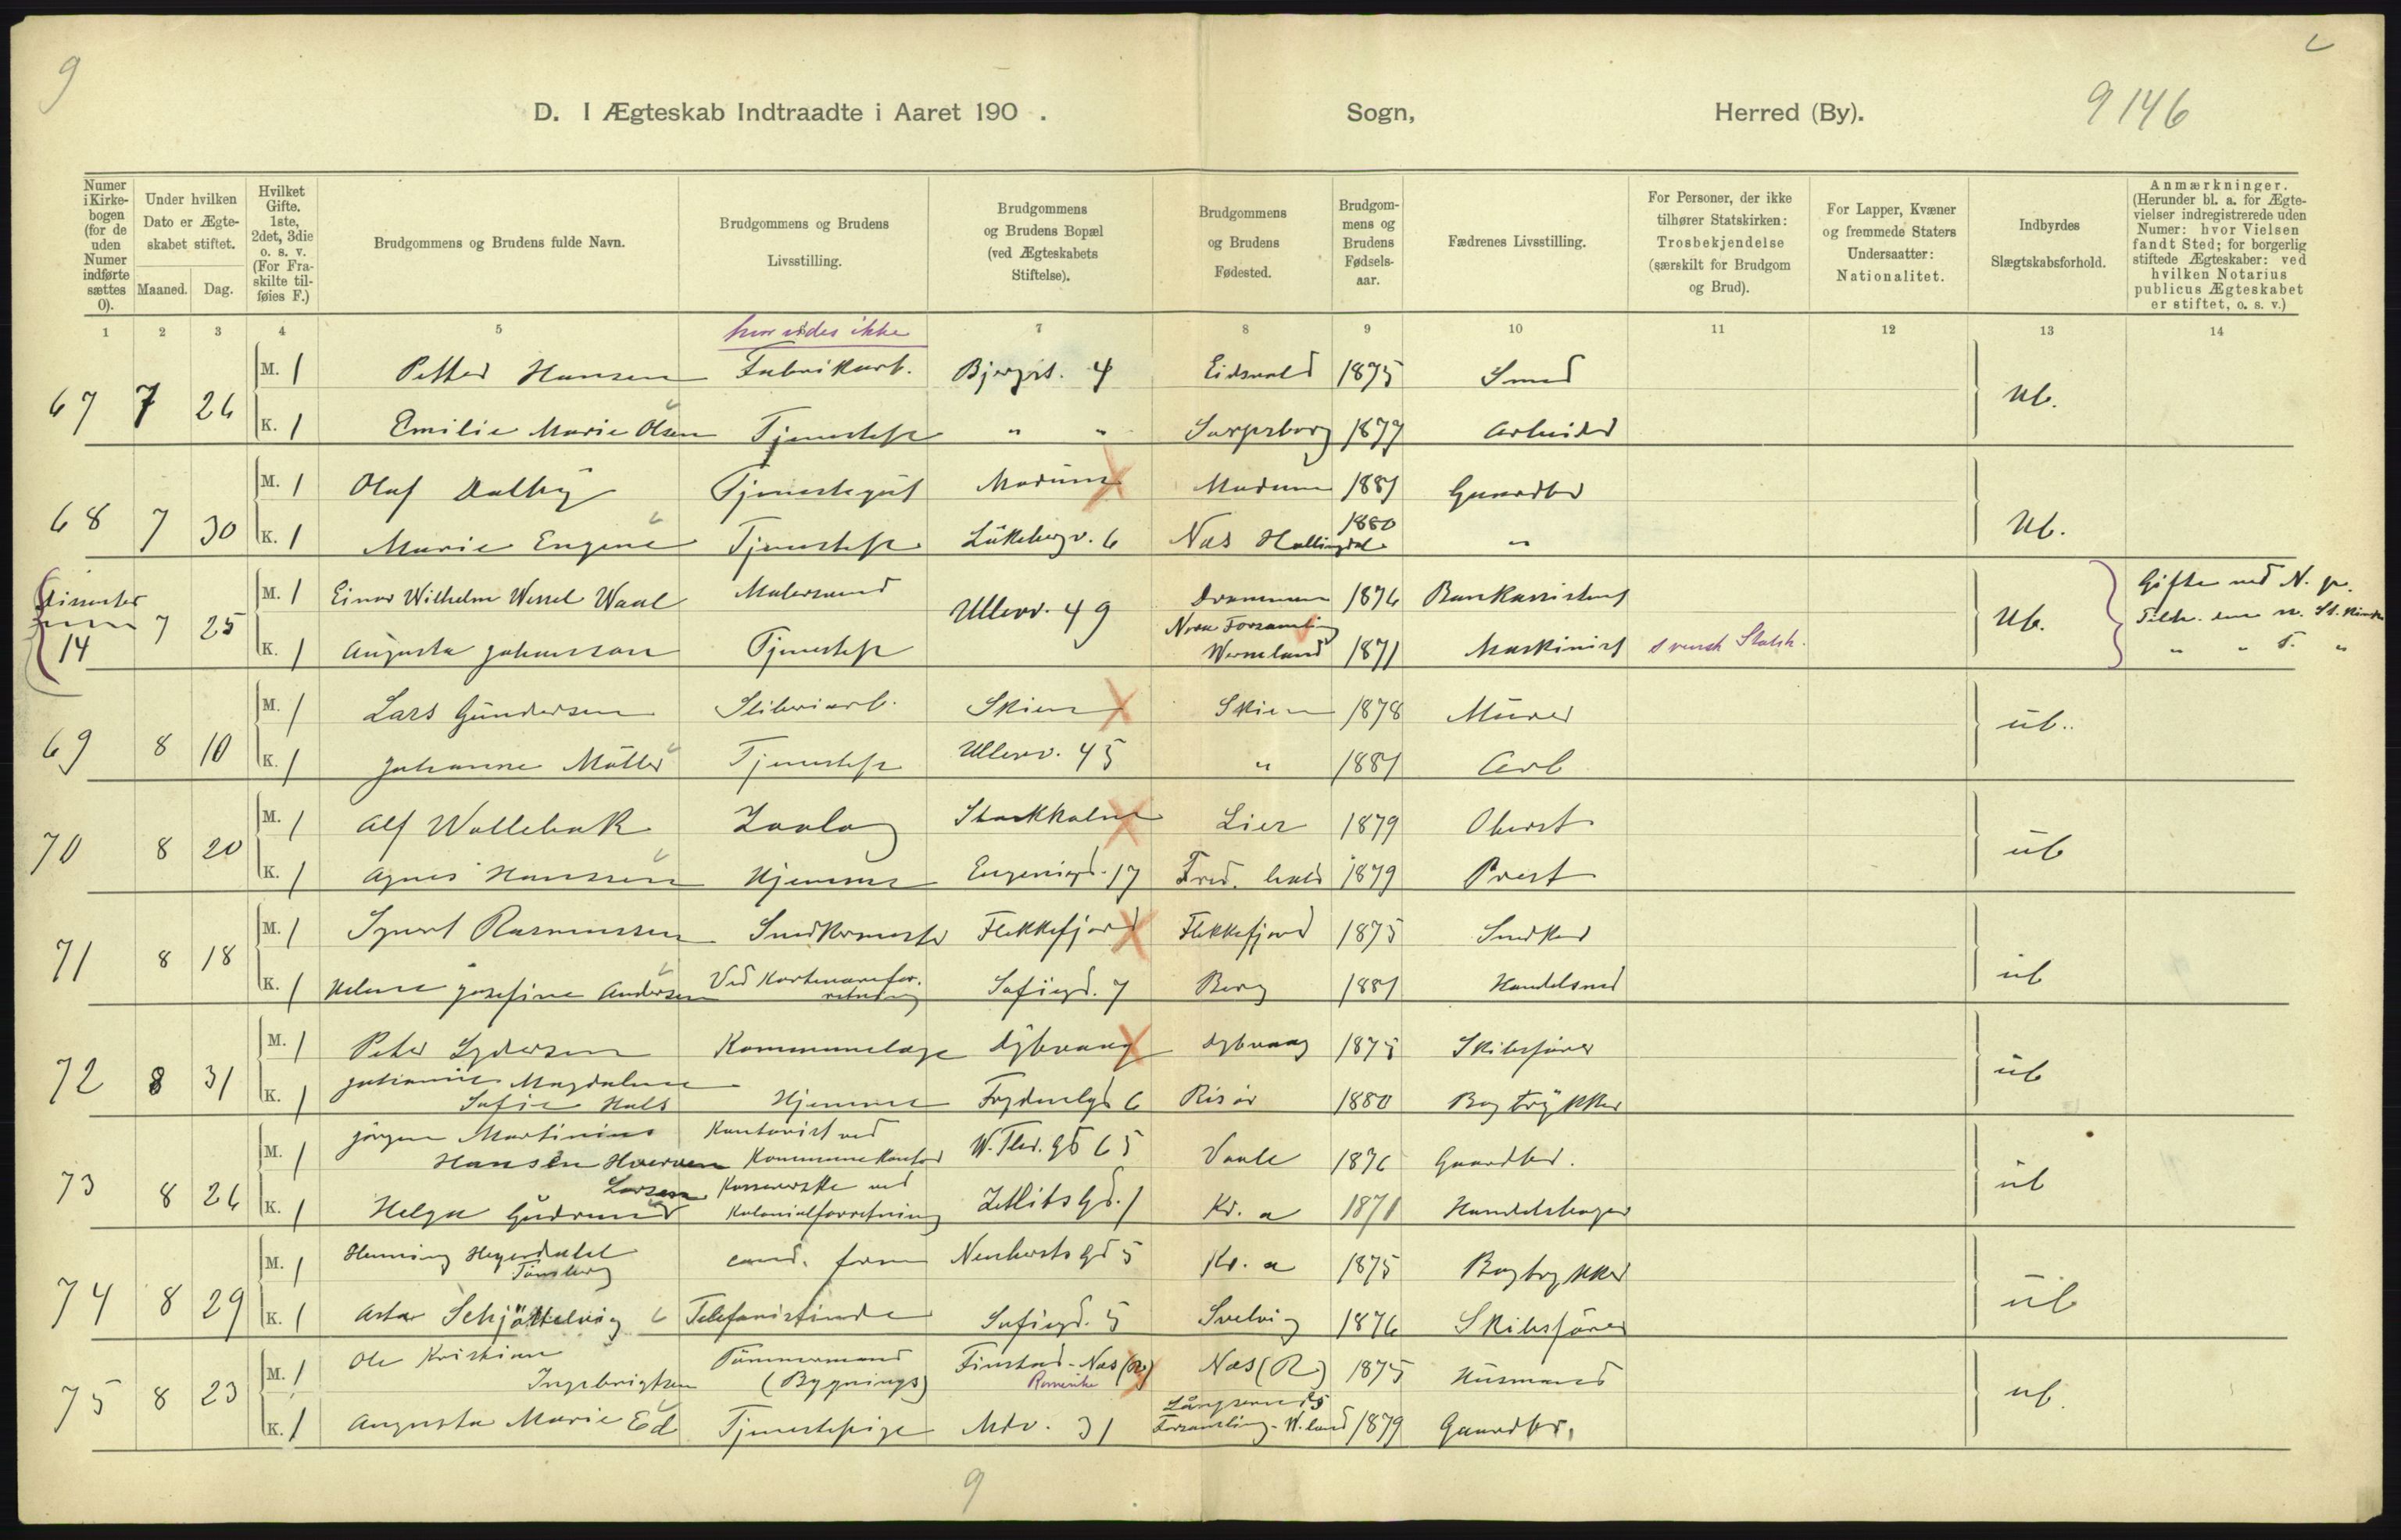 9
D. I Ægteskab Indtraadte i Aaret 190 .
Sogn,
Herred (By).
9146
Numer i Kirkebogen (for de uden Numer indførte sættes 0).
Under hvilken Dato er Ægteskabet stiftet.
Maaned.
Dag.
Hvilket Gifte. 1ste, 2det, 3die o. s. v. (For Fraskilte tilføies F.)
Brudgommens og Brudens fulde Navn.
Brudgommens og Brudens Livsstilling.
Brudgommens og Brudens Bopæl (ved Ægteskabets Stiftelse).
Brudgommens og Brudens Fødested.
Brudgommens og Brudens Fødselsaar.
Fædrenes Livsstilling.
For Personer, der ikke tilhører Statskirken: Trosbekjendelse (særskilt for Brudgom og Brud).
For Lapper, Kvæner og fremmede Staters Undersaatter: Nationalitet.
Indbyrdes Slægtskabsforhold.
Anmærkninger. (Herunder bl. a. for Ægtevielser indregistrerede uden Numer: hvor Vielsen fandt Sted; for borgerlig stiftede Ægteskaber: ved hvilken Notarius publicus Ægteskabet er stiftet, o. s. v.)
1 2 3 4 5 7 8 9 10 11 12 13 14
hvor vides ikke
67 7 26 M. 1 Petter Hansen Fabrikarb. Bjergst. 4 Eidsvold 1875 Smed Ub.
K. 1 Emilie Marie Olsen Tjenestep " " Sarpsborg 1877 Arbeider
68 7 30 M. 1 Olaf Dalby Tjenestegut Modum Modum 1881 Gaardbr Ub.
K. 1 Marie Engene Tjenestep Lükkebergv. 6 Næs Hallingdal 1880 "
Dissenter 14 7 25 M. 1 Einar Wilhelm Wessel Waal Malersvend Ullevv. 49 Drammen 1876 Bankassistent Ub. Gifte ved N. p.
K. 1 Augusta Johansson Tjenestep Forsamling Wermland 1871 Maskinist svensk Statsk. " " "
69 8 10 M. 1 Lars Gundersen Sliberiarb. Skien Skien 1878 Murer üb.
K. 1 Johanne Möller Tjenestep Ullevv. 45 " 1881 Arb
70 8 20 M. 1 Alf Wollebæk Zoolog Stockholm Lier 1879 Oberst üb
K. 1 Agnes Hanssen Hjemme Eugeniegd. 17 Fred. hald 1879 Prest
71 8 18 M. 1 Sivert Rasmussen Snedkermester Flekkefjord Flekkefjord 1875 Snedker üb
K. 1 Helene Josefine Andersen Ved Kortevarefor. retning Sofiegd. 7 Berg 1881 Handelsmd
72 8 31 M. 1 Peter Lydersen Kommunelæge Dybvaag Dybvaag 1875 Skibsfører üb
K. 1 Johanne Magdalene
Sofie Hals Hjemme Frydenlgd 6 Risør 1880 Bogtrykker
73 8 26 M. 1 Jørgen Martinius Kontorist ved
Hansen Kommunekontor W. Thr. gd 65 Vaale 1876 Gaardbr. üb
K. 1 Larsen Kassererske ved
Helga Gudrun Kolonialforretning Zetlitsgd. 1 Kr. a 1871 Handelsborger
74 8 29 M. 1 Henning Heyerdahl
Tønsberg cand. farm Neubertsgd 5 Kr. a 1875 Bogtrykker üb
K. 1 Asta Schjöttelvig Telefonistinde Sofiegd. 5 Svelvig 1876 Skibsfører
75 8 23 M. 1 Ole Kristian Tømmermand
Ingebrigtsen (Bygnings) Finstad-Næs (R) Romerike Næs (R) 1875 Husmand ub.
K. 1 Augusta Marie Ed Tjenestepige Mdv. 31 Långseruds Forsamling-W.land 1879 Gaardbr.
9